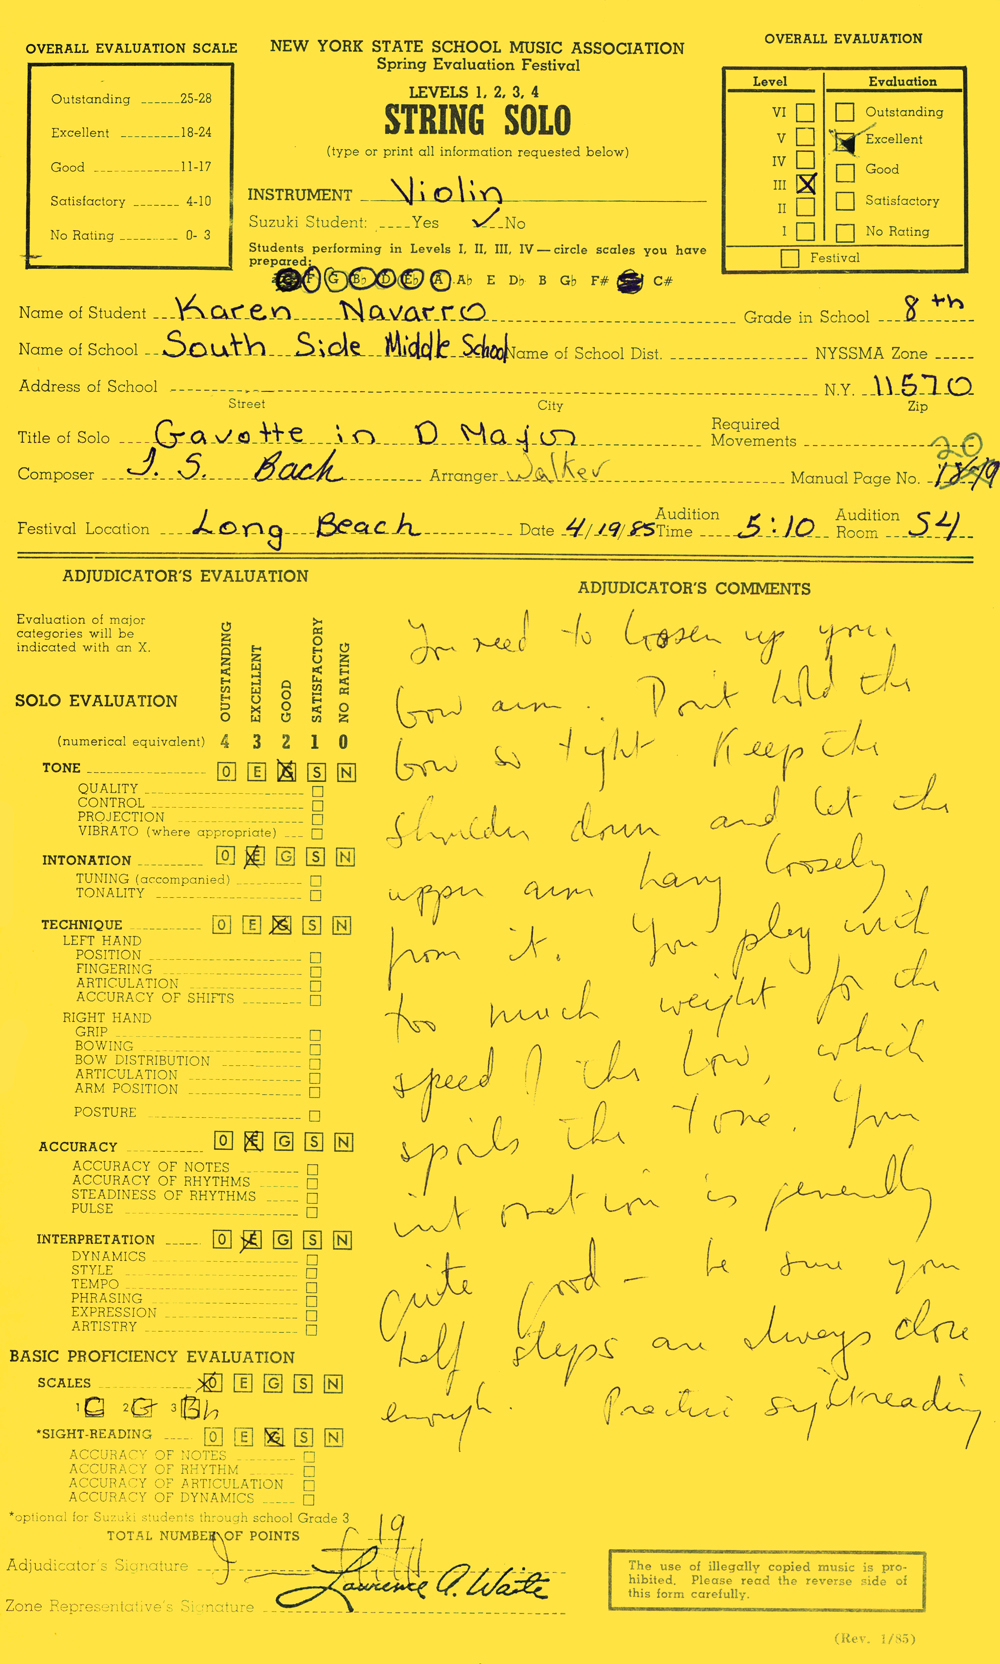 OVERALL EVALUATION SCALE
Outstanding ......25-28
Excellent .........18-24
Good .........11-17
Satisfactory ..... 4-10
No Rating ......... 0- 3
NEW YORK STATE SCHOOL MUSIC ASSOCIATION
Spring Evaluation Festival
LEVELS 1, 2, 3, 4
STRING SOLO
(type or print all information requested below)
INSTRUMENT Violin
Suzuki Student: ....Yes ✓ No
Students performing in Levels I, II, III, IV — circle scales you have
prepared:
C F G B♭ D E♭ A A♭ E D♭ B G♭ F# C#
OVERALL EVALUATION
Level Evaluation
VI Outstanding
V Excellent
IV Good
III X Satisfactory
II No Rating
I
Festival
Name of Student Karen Navarro Grade in School 8th
Name of School South Side Middle School Name of School Dist. NYSSMA Zone
Address of School N.Y. 11570
Street City Zip
Title of Solo Gavotte in D Major Required Movements
Composer J. S. Bach Arranger Walker Manual Page No. 20
Festival Location Long Beach Date 4/19/85 Audition Time 5:10 Audition Room S4
ADJUDICATOR'S EVALUATION
Evaluation of major
categories will be
indicated with an X.
OUTSTANDING
EXCELLENT
GOOD
SATISFACTORY
NO RATING
SOLO EVALUATION
(numerical equivalent) 4 3 2 1 0
TONE O E G S N
QUALITY
CONTROL
PROJECTION
VIBRATO (where appropriate)
INTONATION O E G S N
TUNING (accompanied)
TONALITY
TECHNIQUE O E G S N
LEFT HAND
POSITION
FINGERING
ARTICULATION
ACCURACY OF SHIFTS
RIGHT HAND
GRIP
BOWING
BOW DISTRIBUTION
ARTICULATION
ARM POSITION
POSTURE
ACCURACY O E G S N
ACCURACY OF NOTES
ACCURACY OF RHYTHMS
STEADINESS OF RHYTHMS
PULSE
INTERPRETATION O E G S N
DYNAMICS
STYLE
TEMPO
PHRASING
EXPRESSION
ARTISTRY
BASIC PROFICIENCY EVALUATION
SCALES O E G S N
1 C 2 G 3 Bb
*SIGHT-READING O E G S N
ACCURACY OF NOTES
ACCURACY OF RHYTHM
ACCURACY OF ARTICULATION
ACCURACY OF DYNAMICS
*optional for Suzuki students through school Grade 3
TOTAL NUMBER OF POINTS 19
Adjudicator's Signature
Zone Representative's Signature Lawrence A. Waite
ADJUDICATOR'S COMMENTS
You need to loosen up your
bow arm. Don't hold the
bow so tight. Keep the
shoulder down and let the
upper arm hang loosely
from it. You play with
too much weight for the
speed of the bow, which
spoils the tone. Your
intonation is generally
quite good – be sure your
half steps are always close
enough. Practice sightreading
The use of illegally copied music is pro-
hibited. Please read the reverse side of
this form carefully.
(Rev. 1/85)